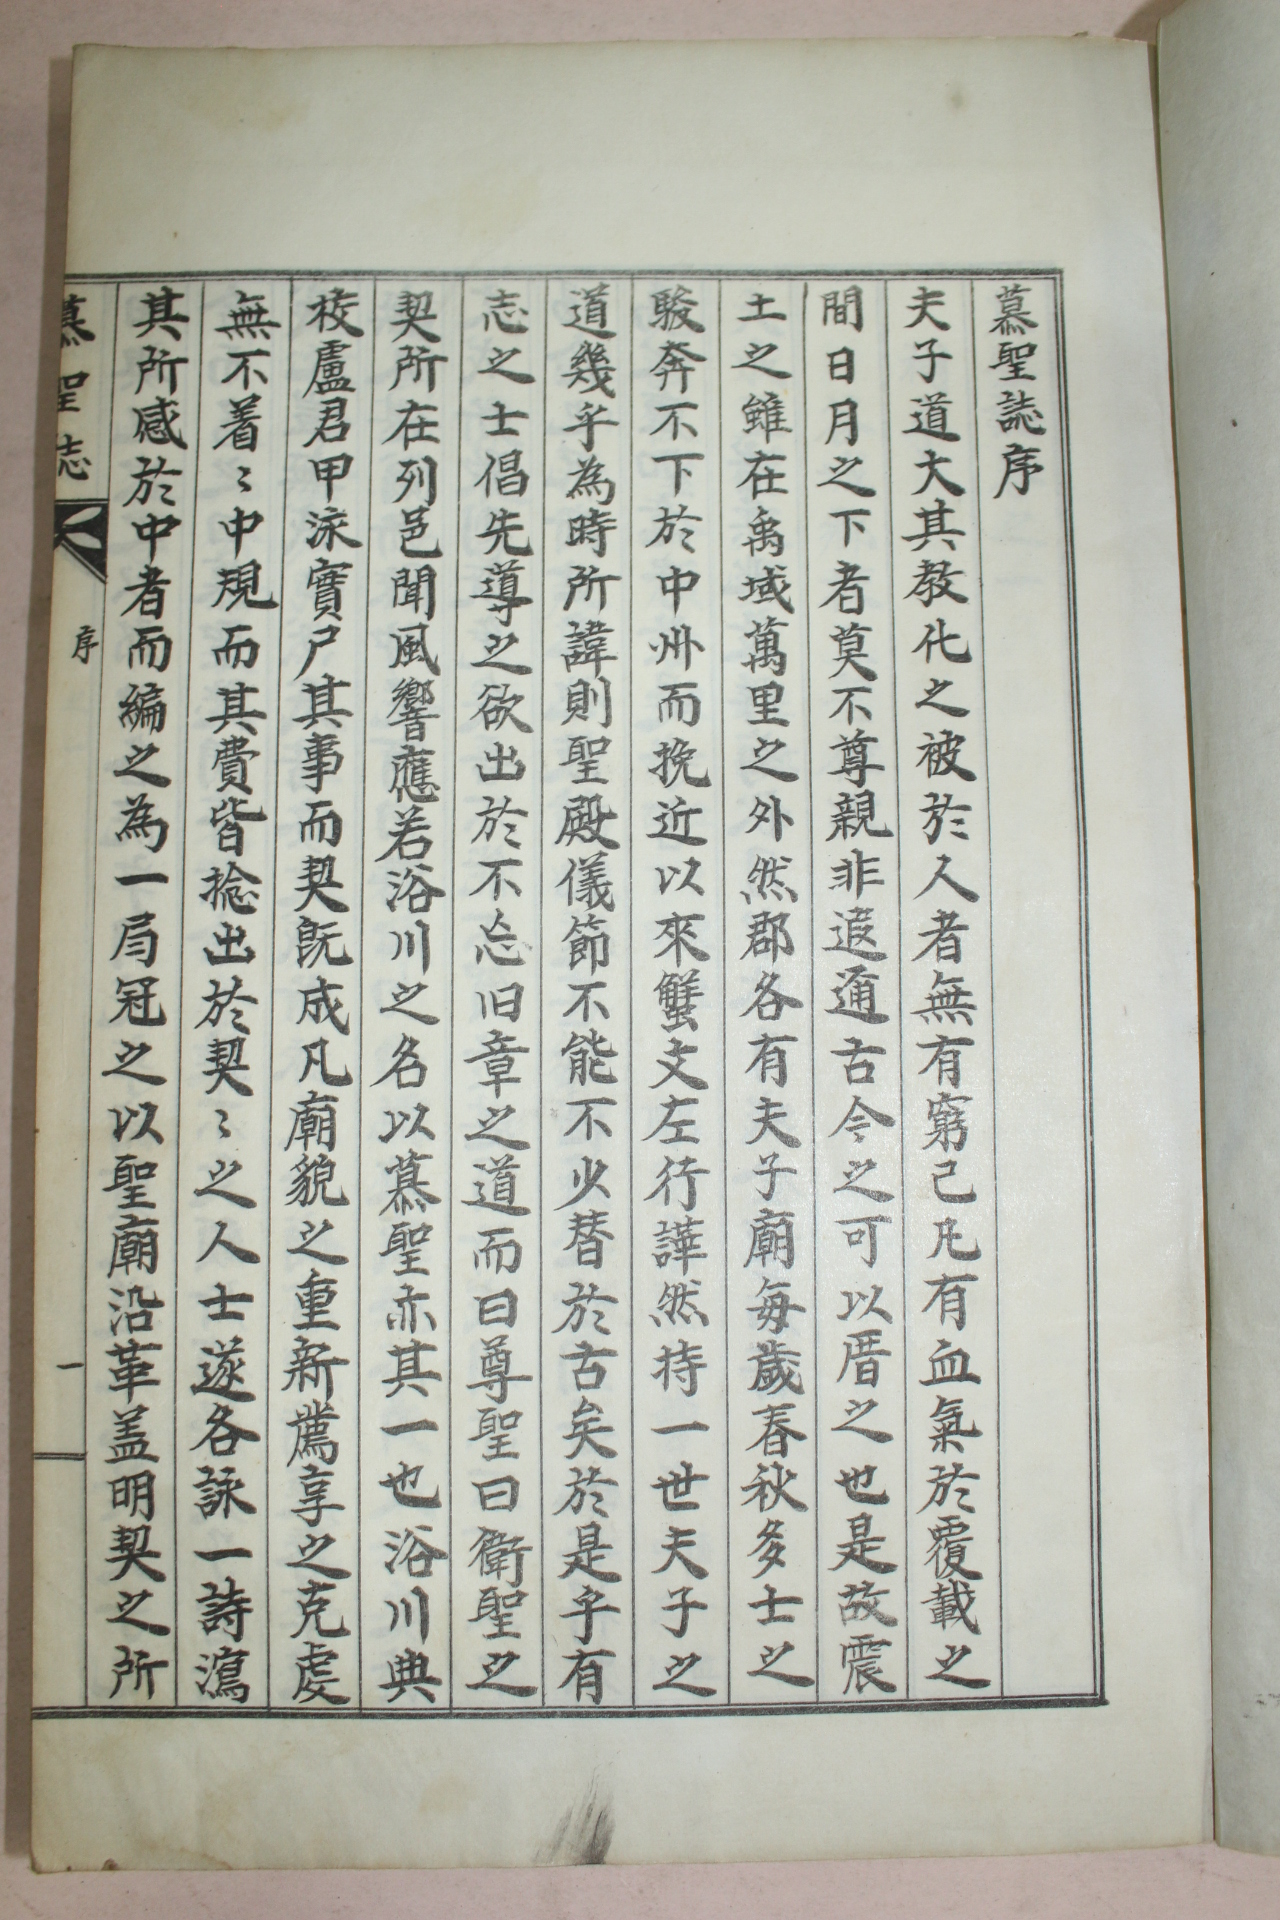 慕聖誌序
夫子道大其教化之被於人者無有窮已凡有血氣於覆載之
間日月之下者莫不尊親非遐邇古今之可以厝之也是故震
土之雖在禹域萬里之外然郡各有夫子廟每歲春秋多士之
駿奔不下於中州而挽近以來蟹文左行譁然持一世夫子之
道幾乎為時所諱則聖殿儀節不能不少替於古矣於是乎有
志之士倡先導之欲出於不忘旧章之道而曰尊聖曰衛聖之
契所在列邑聞風響應若浴川之名以慕聖亦其一也浴川典
校盧君甲泳實尸其事而契旣成凡廟貌之重新薦享之克虔
無不着〻中規而其費皆捴出於契〻之人士遂各詠一詩瀉
其所感於中者而編之為一局冠之以聖廟沿革盖明契之所
慕聖志
序
一